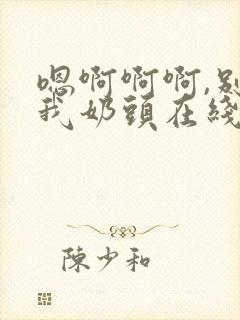 嗯啊啊啊,别
我奶頭在綫
陳少和